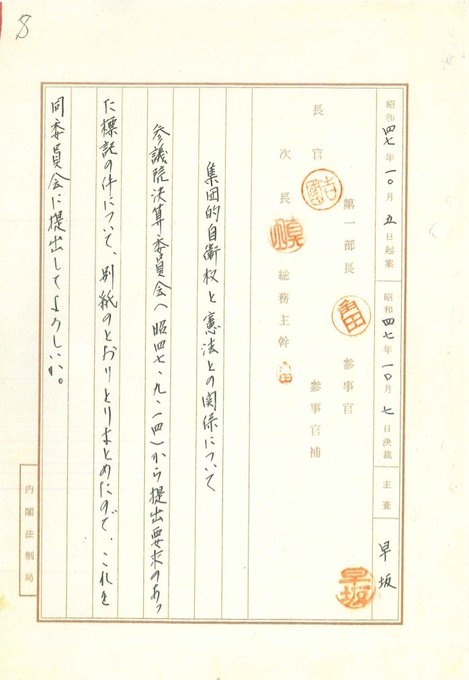 8
昭和四七年一〇月五日起案
昭和四七年一〇月七日決裁
主査
早坂
早坂
長官
第一部長
参事官
参事官補
吉國
角田
次長
真田
総務主幹
集団的自衛権と憲法との関係について
参議院決算委員会(昭四七、九、一四)から提出要求のあっ
た標記の件について、別紙のとおりとりまとめたので、これを
同委員会に提出してよろしいか。
内閣法制局